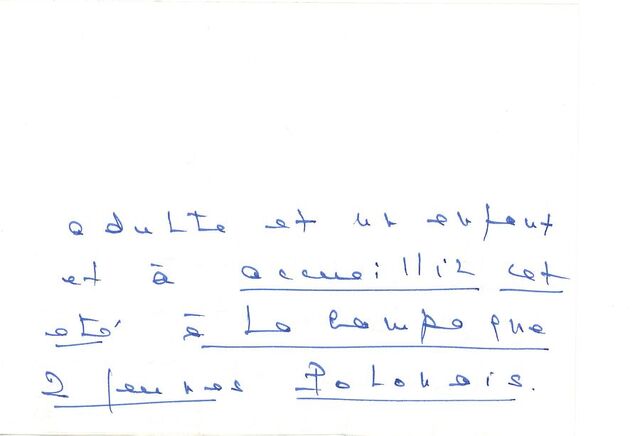 adulte et un enfant
et à accueillir cet
été à La campagne
2 jeunes Polonais.